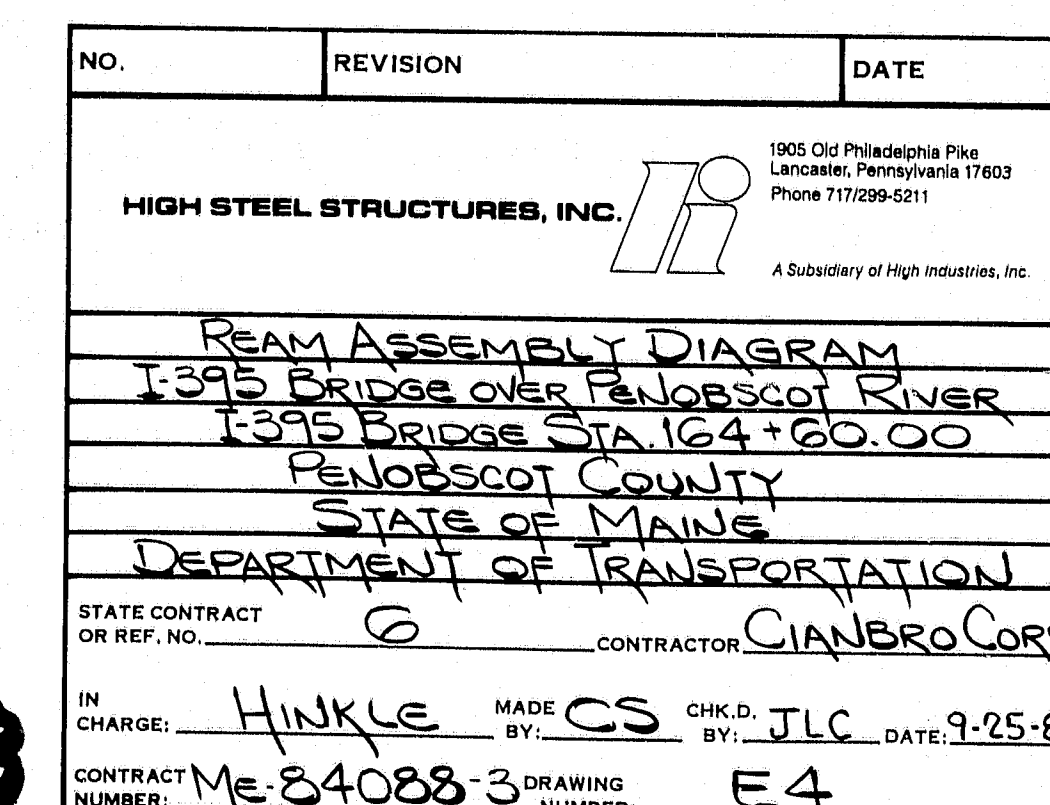 NO. REVISION DATE
1905 Old Philadelphia Pike
Lancaster, Pennsylvania 17603
Phone 717/299-5211
HIGH STEEL STRUCTURES, INC.
A Subsidiary of High Industries, Inc.
REAM ASSEMBLY DIAGRAM
I-395 BRIDGE OVER PENOBSCOT RIVER
I-395 BRIDGE STA. 164+60.00
PENOBSCOT COUNTY
STATE OF MAINE
DEPARTMENT OF TRANSPORTATION
STATE CONTRACT
OR REF. NO. 6 CONTRACTOR CIANBRO COR
IN
CHARGE: HINKLE MADE BY: CS CHK.D. BY: JLC DATE: 9-25-8
CONTRACT NUMBER: ME-84088-3 DRAWING NUMBER E4